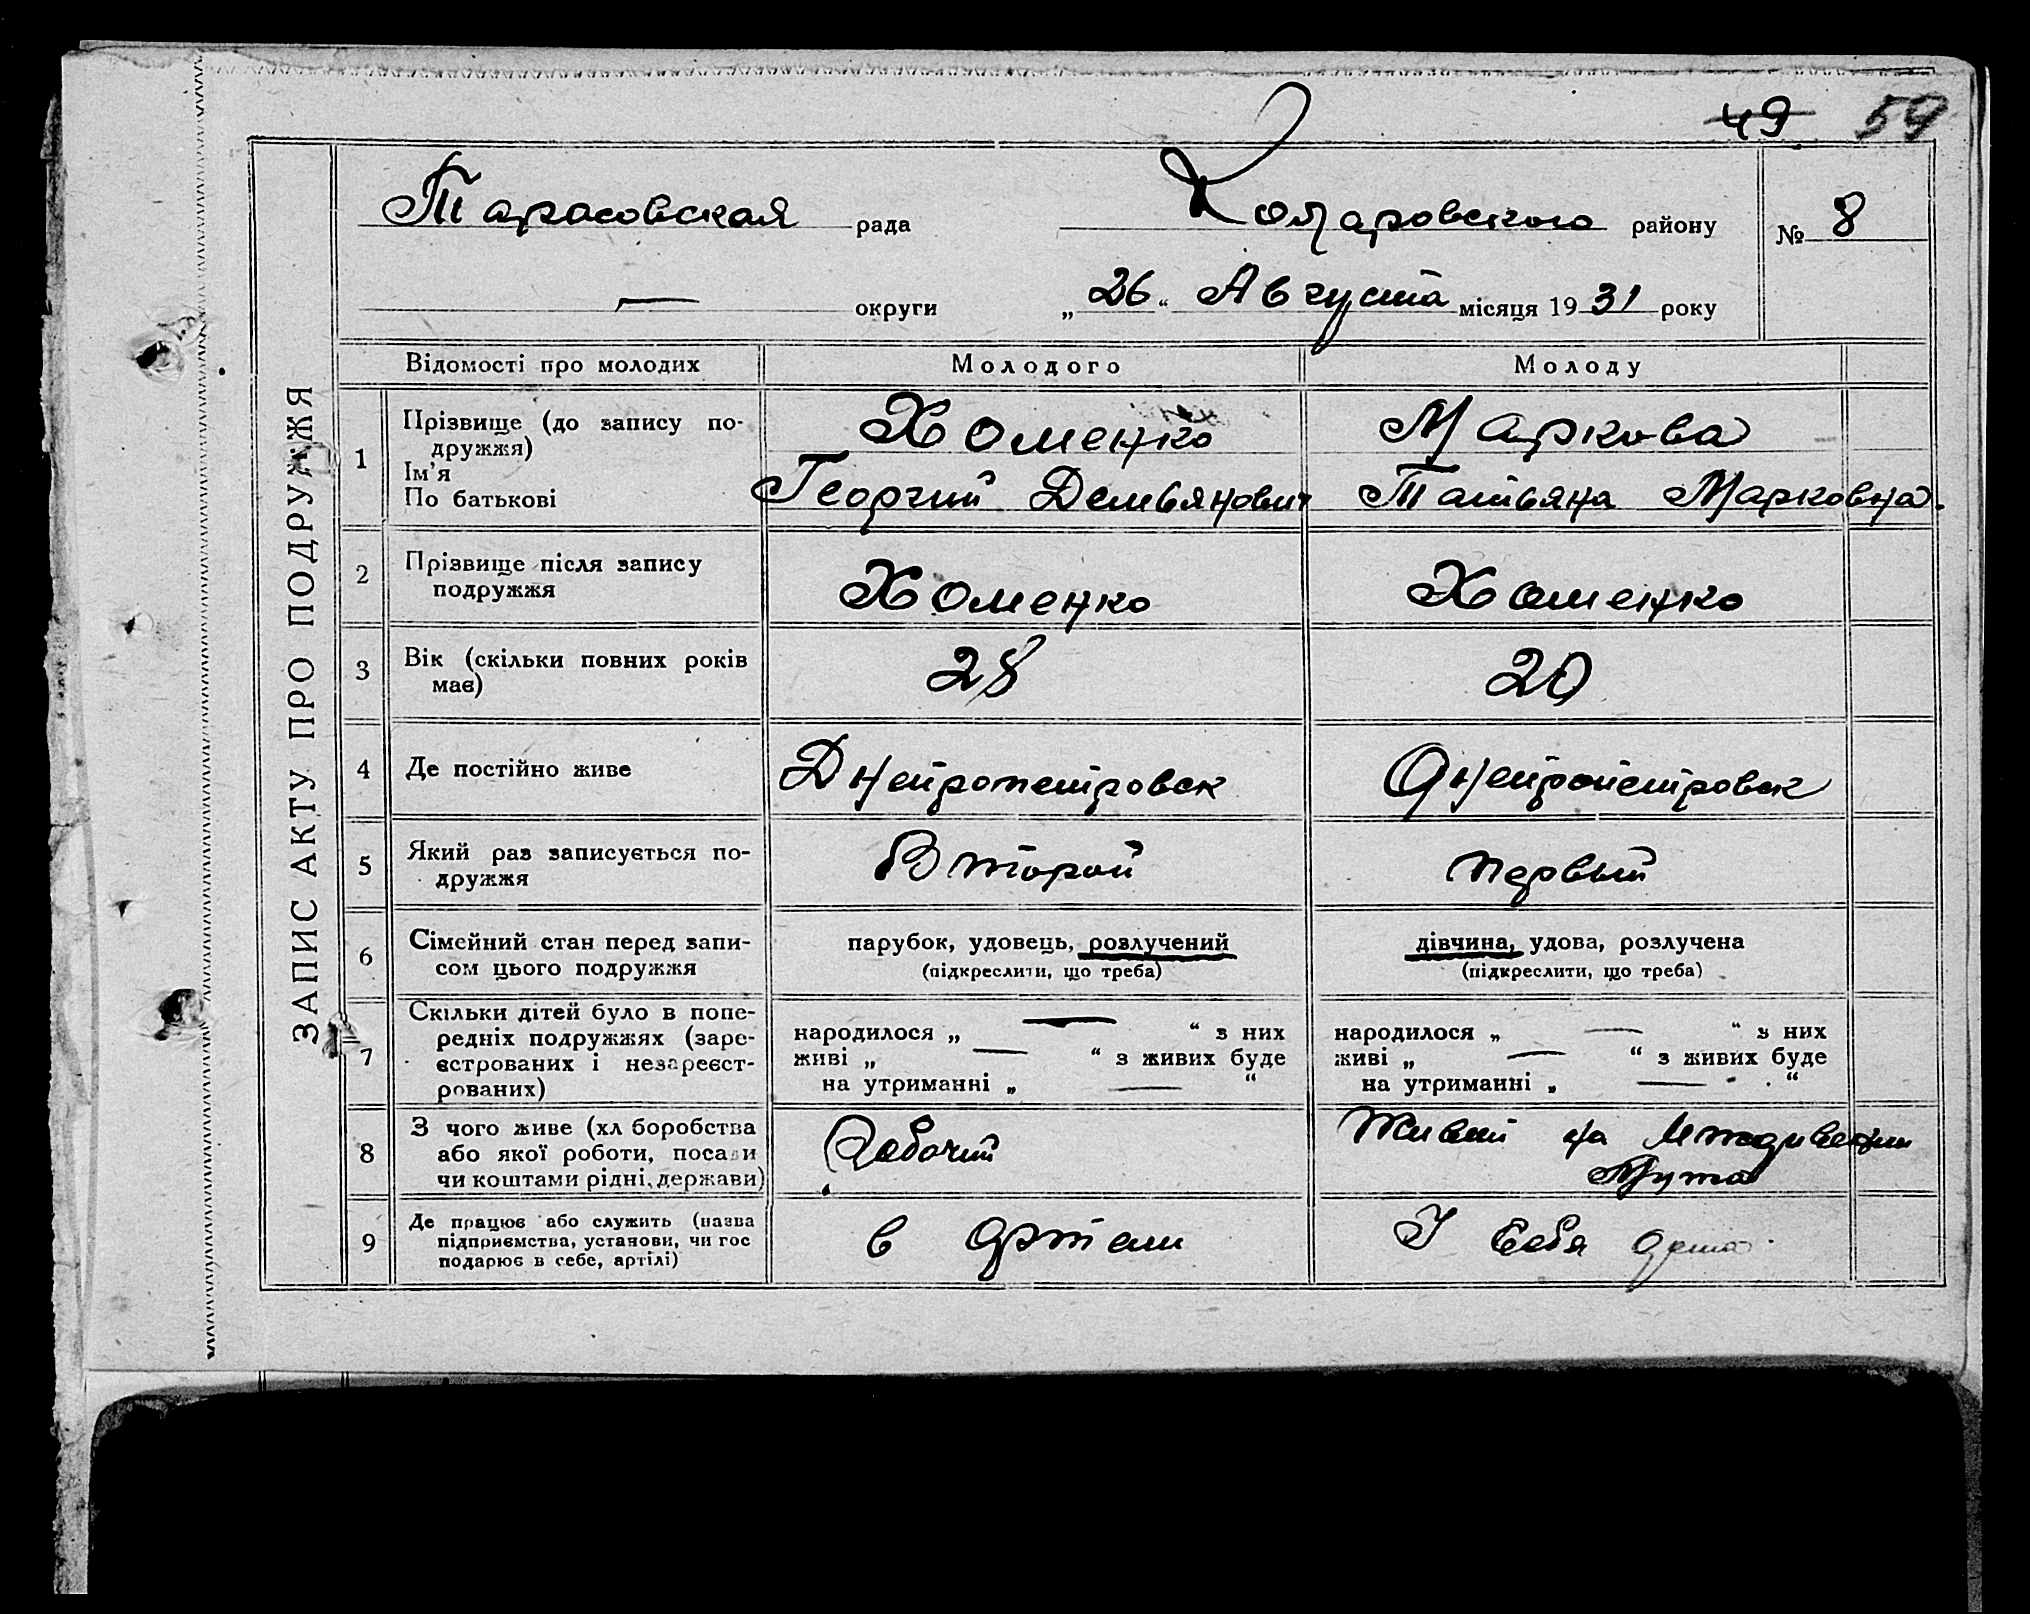 49 59
Тарасовская рада Комаровского району № 8
— округи „ 26 “ Августа місяця 1931 року
ЗАПИС АКТУ ПРО ПОДРУЖЖЯ
Відомості про молодих Молодого Молоду
1 Прізвище (до запису по-
дружжя)
Ім’я
По батькові
Хоменко
Георгий Демьянович
Маркова
Татьяна Марковна.
2 Прізвище після запису
подружжя
Хоменко Хоменко
3 Вік (скільки повних років
має)
28 20
4 Де постійно живе Днепропетровск Днепропетровск
5 Який раз записується по-
дружжя
Второй первый
6 Сімейний стан перед запи-
сом цього подружжя
парубок, удовець, розлучений
(підкреслити, що треба)
дівчина, удова, розлучена
(підкреслити, що треба)
7 Скільки дітей було в попе-
редніх подружжях (заре-
єстрованих і незареєст-
рованих)
народилося „ — “ з них
живі „ — “ з живих буде
на утриманні „ — “
народилося „ — “ з них
живі „ — “ з живих буде
на утриманні „ — “
8 З чого живе (хл боробства
або якої роботи, посади
чи коштами рідні, держави)
Рабочий
Живет на Иждивении
Мужа
9 Де працює або служить (назва
підприємства, установи, чи гос
подарює в себе, артілі)
в артели
У себя дома